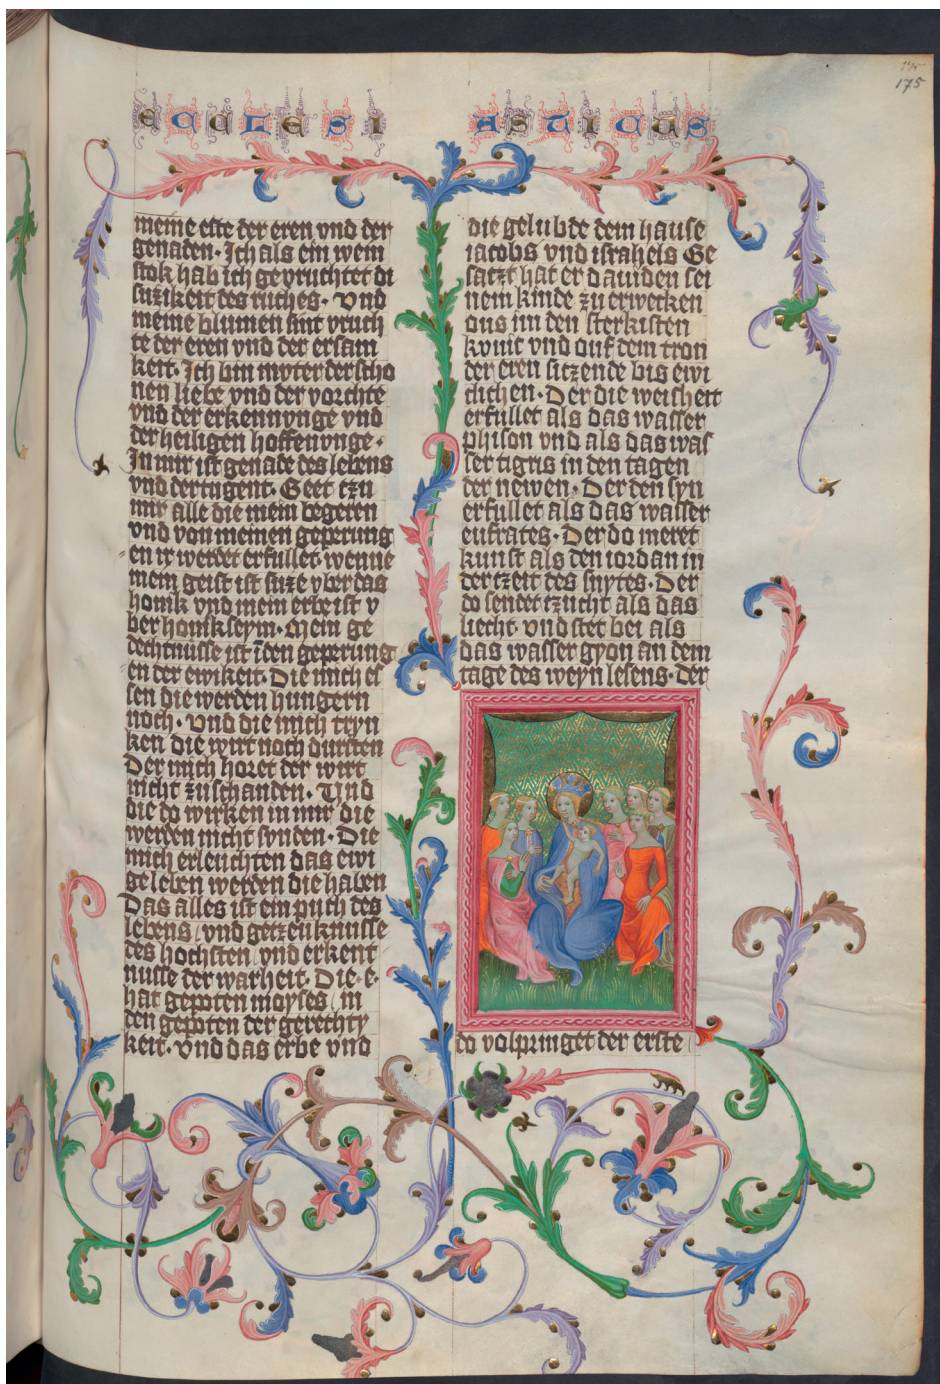 ECCLESI ASTICUS
175
meine este der eren vnd der
genaden· Ich als ein wein
stok hab ich gevruchtet di
suzikeit des ruches· Vnd
meine blumen sint vruch
te der eren vnd der ersam
keit· Ich bin mvter der scho
nen liebe vnd der vorchte
vnd der erkennvnge vnd
der heiligen hoffenvnge·
In mir ist genade des lebens
vnd der tugent· Geet czu
mir alle die mein begeren
vnd von meinen geperung
en ir werdet erfullet· wenne
mein geist ist suze vber das
honik vnd mein erbe ist v
ber honikseym· Mein ge
dechtnusse ist ī den geperung
en der ewikeit· Die mich es
sen die werden hungern
noch· vnd die mich tryn
ken die wirt noch dursten
Der mich horet der wirt
nicht zuschanden· Vnd
die do wirken in mir die
werden nicht synden· Die
mich erleuchten das ewi
ge leben werden die haben
Das alles ist ein puch des
lebens vnd getzeuknusse
des hochsten vnd erkent
nusse der warheit· Die e·
hat gepoten moyses in
den gepoten der gerechty
keit· vnd das erbe vnd
die gelubde dem hause
iacobs vnd israhels Ge
satzt hat er dauiden sei
nem kinde zu erwecken
ous im den sterkisten
kvnic vnd ouf dem tron
der eren sitzende bis ewi
clichen· Der die weisheit
erfullet als das wasser
phison vnd als das was
ser tigris in den tagen
der newen· Der den syn
erfullet als das wasser
eufrates· Der do meret
kunst als den iordan in
der tzeit des snytes· Der
do sendet tzucht als das
liecht· vnd stet bei als
das wasser gyon an dem
tage des weyn lesens· der
do volpringet der erste